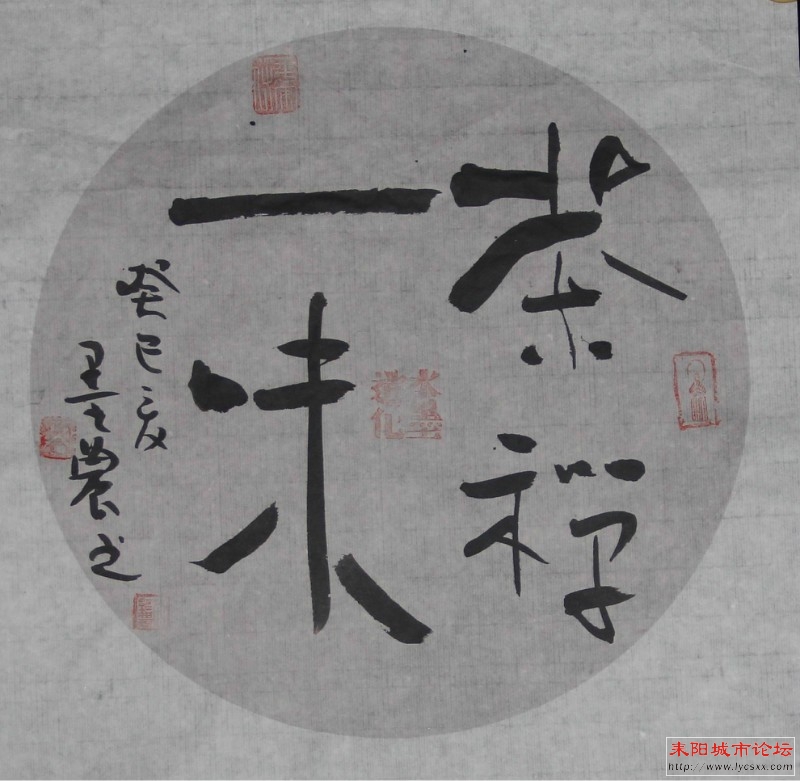 茶禅
一味
癸巳夏
墨农书
水墨造化
耒阳城市论坛
http://www.lycsxx.com